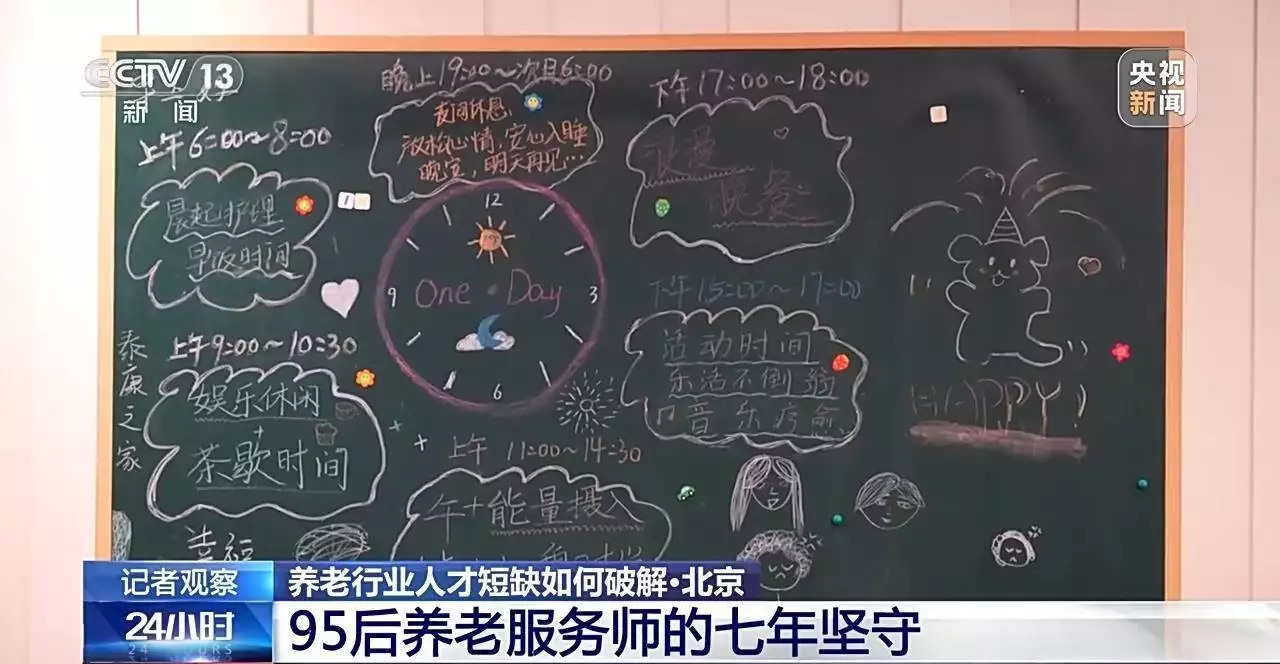 CCTV 13
新闻
央视
新闻
晚上19:00~次日6:00
夜间休息:
放松心情,安心入睡
晚安,明天再见…
下午17:00~18:00
浪漫
晚餐
上午6:00~8:00
晨起护理
早饭时间
12
3
6
9
One Day
下午15:00~17:00
活动时间
乐活不倒翁
音乐疗愈
泰康之家
上午9:00~10:30
娱乐休闲
+
茶歇时间
上午 11:00~14:30
午+能量摄入
幸福
HAPPY!
记者观察
24小时
24 HOURS
养老行业人才短缺如何破解·北京
95后养老服务师的七年坚守